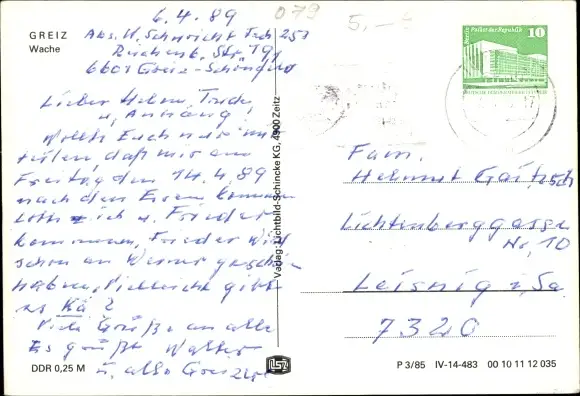 GREIZ
Wache
6.4.89
079
5,-
Abs. W. Schuricht Tel 251
Reichenb. Str. 191
6601 Greiz-Schönfeld
Lieber Helmu, Trude
u. Anhang,
Wollte Euch nur mit
teilen, daß wir am
Freitag den 14.4.89
nach dem Essen kommen
ich u. Frieder
kommen, Frieder wird
schon an Werner geschrie
haben, Vielleicht gibt
es Kä ?
Viele Grüße an alle
Es grüßt Walter
u. alle Greizer
DDR 0,25 M
Verlag: Lichtbild-Schincke KG, 4900 Zeitz
Palast der Republik
10
Fam.
Helmut
Lichtenberggasse
Nr. 10
Leisnig i. Sa
7320
P 3/85 IV-14-483 00 10 11 12 035